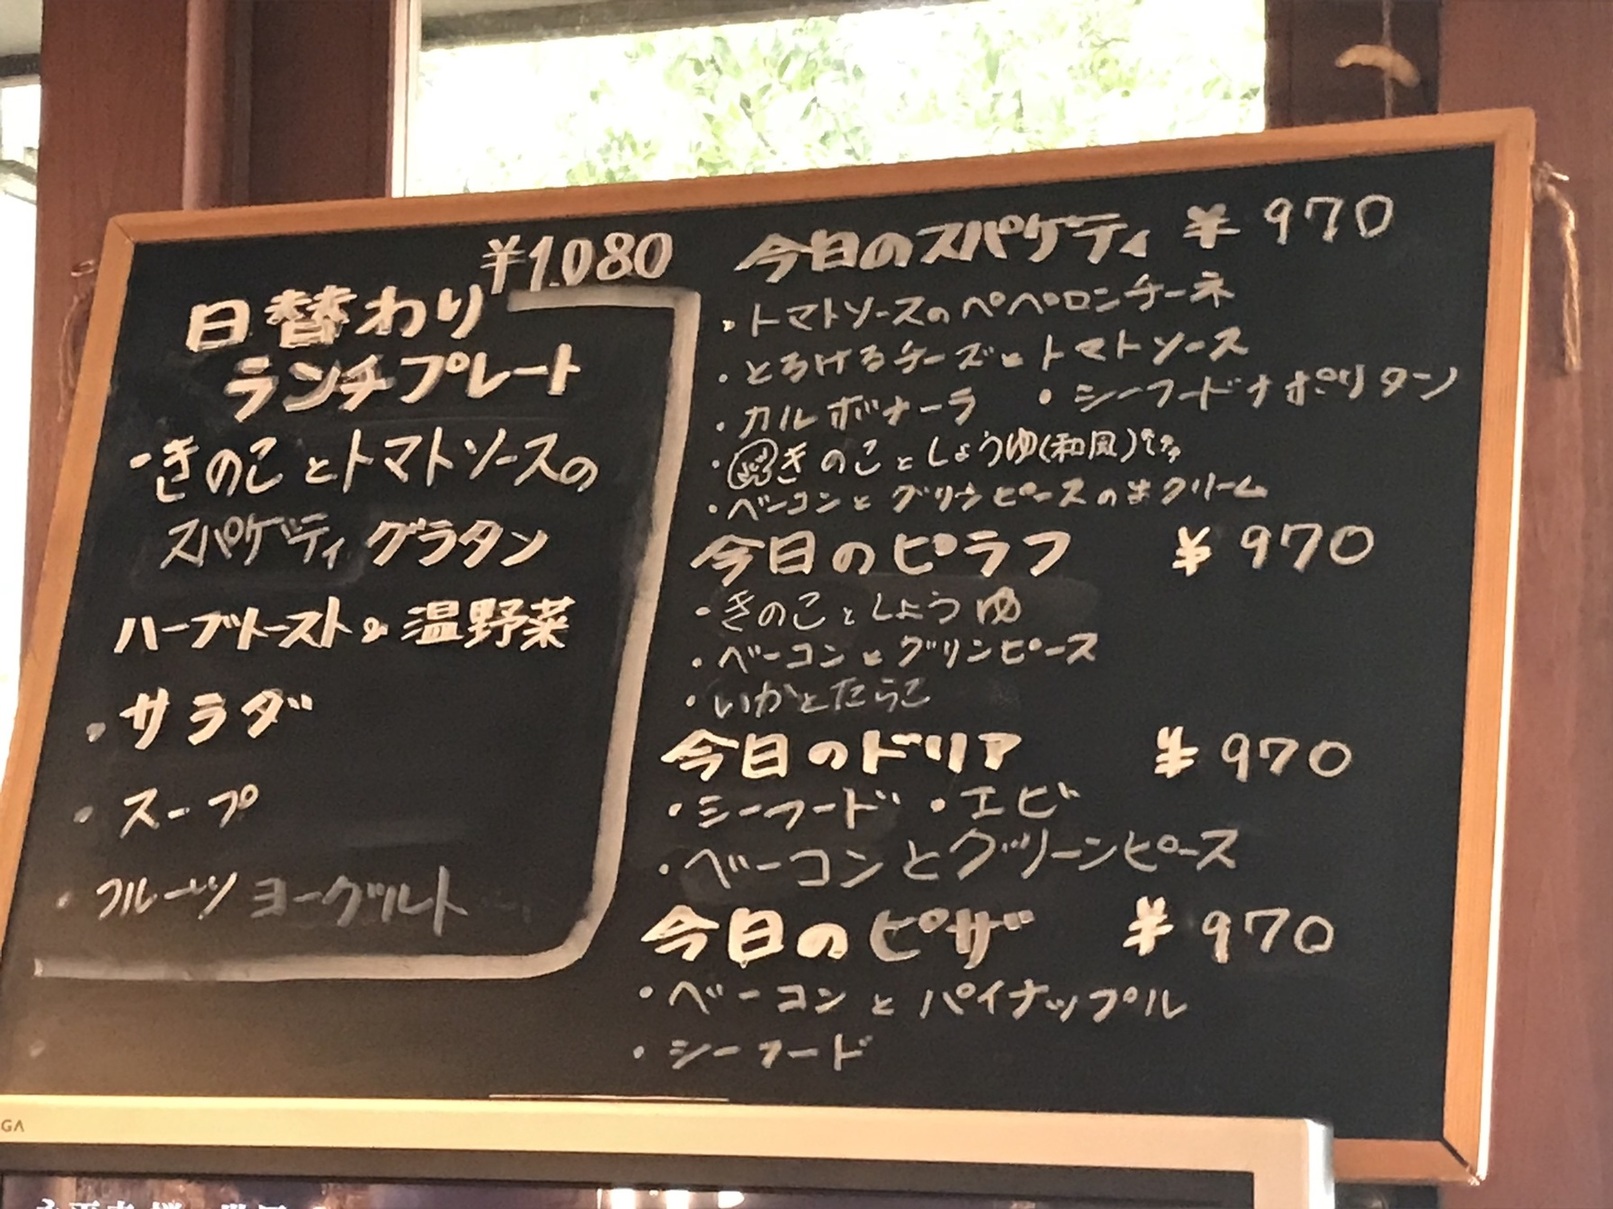 ¥1.080
日替わり
ランチプレート
・きのことトマトソースの
スパゲティグラタン
ハーブトースト& 温野菜
・サラダ
・スープ
・フルーツヨーグルト
今日のスパゲティ ¥970
・トマトソースのペペロンチーネ
・とろけるチーズとトマトソース
・カルボナーラ ・シーフードナポリタン
・きのことしょうゆ(和風)
・ベーコンとグリンピースの生クリーム
今日のピラフ ¥970
・きのことしょうゆ
・ベーコンとグリンピース
・いかとたらこ
今日のドリア ¥970
・シーフード ・エビ
・ベーコンとグリーンピース
今日のピザ ¥970
・ベーコンとパイナップル
・シーフード
GA